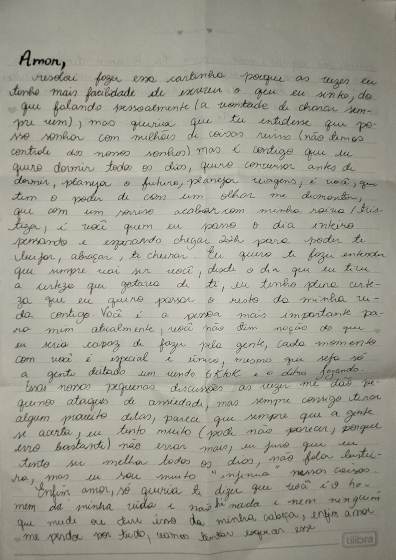 Amor,
resolvi fazer essa cartinha porque as vezes eu
tenho mais facilidade de escrever o que eu sinto, do
que falando pessoalmente (a vontade de chorar sem-
pre vem), mas queria que tu entidesse que po-
sso sonhar com milhões de coisas ruins (não temos
controle dos nossos sonhos) mas é contigo que eu
quero dormir todos os dias, quero conversar antes de
dormir, planejar o futuro, planejar viagens, é você, que
tem o poder de com um olhar me desmontar,
que com um sorriso acabar com minha raiva/tris-
teza, é você quem eu passo o dia inteiro
pensando e esperando chegar 22h para poder te
beijar, abraçar, te cheirar. Eu quero te fazer entender
que sempre vai ser você, desde o dia que eu tive
a certeza que gostava de ti, eu tenho plena certe-
za que eu quero passar o resto da minha vi-
da contigo. Você é a pessoa mais importante pa-
ra mim atualmente, você não tem noção do que
eu seria capaz de fazer pela gente, cada momento
com você é especial e único, mesmo que seja só
a gente deitado um vendo tiktok e o outro
Essas nossas pequenas discussões as vezes me dão pe-
quenos ataques de ansiedade, mas sempre consigo tirar
algum proveito delas, parece que sempre que a gente
se acerta, eu tento muito (pode não parecer, porque
erro bastante) não errar mais, eu juro que eu
tento ser melhor todos os dias, não
mas eu sou muito nessas coisas.
Enfim amor, só queria te dizer que você é o ho-
mem da minha vida e não há nada e nem ninguém
que mude ou tire isso da minha cabeça, enfim amor
me perdoa por tudo, vamos tentar esse
tilibra